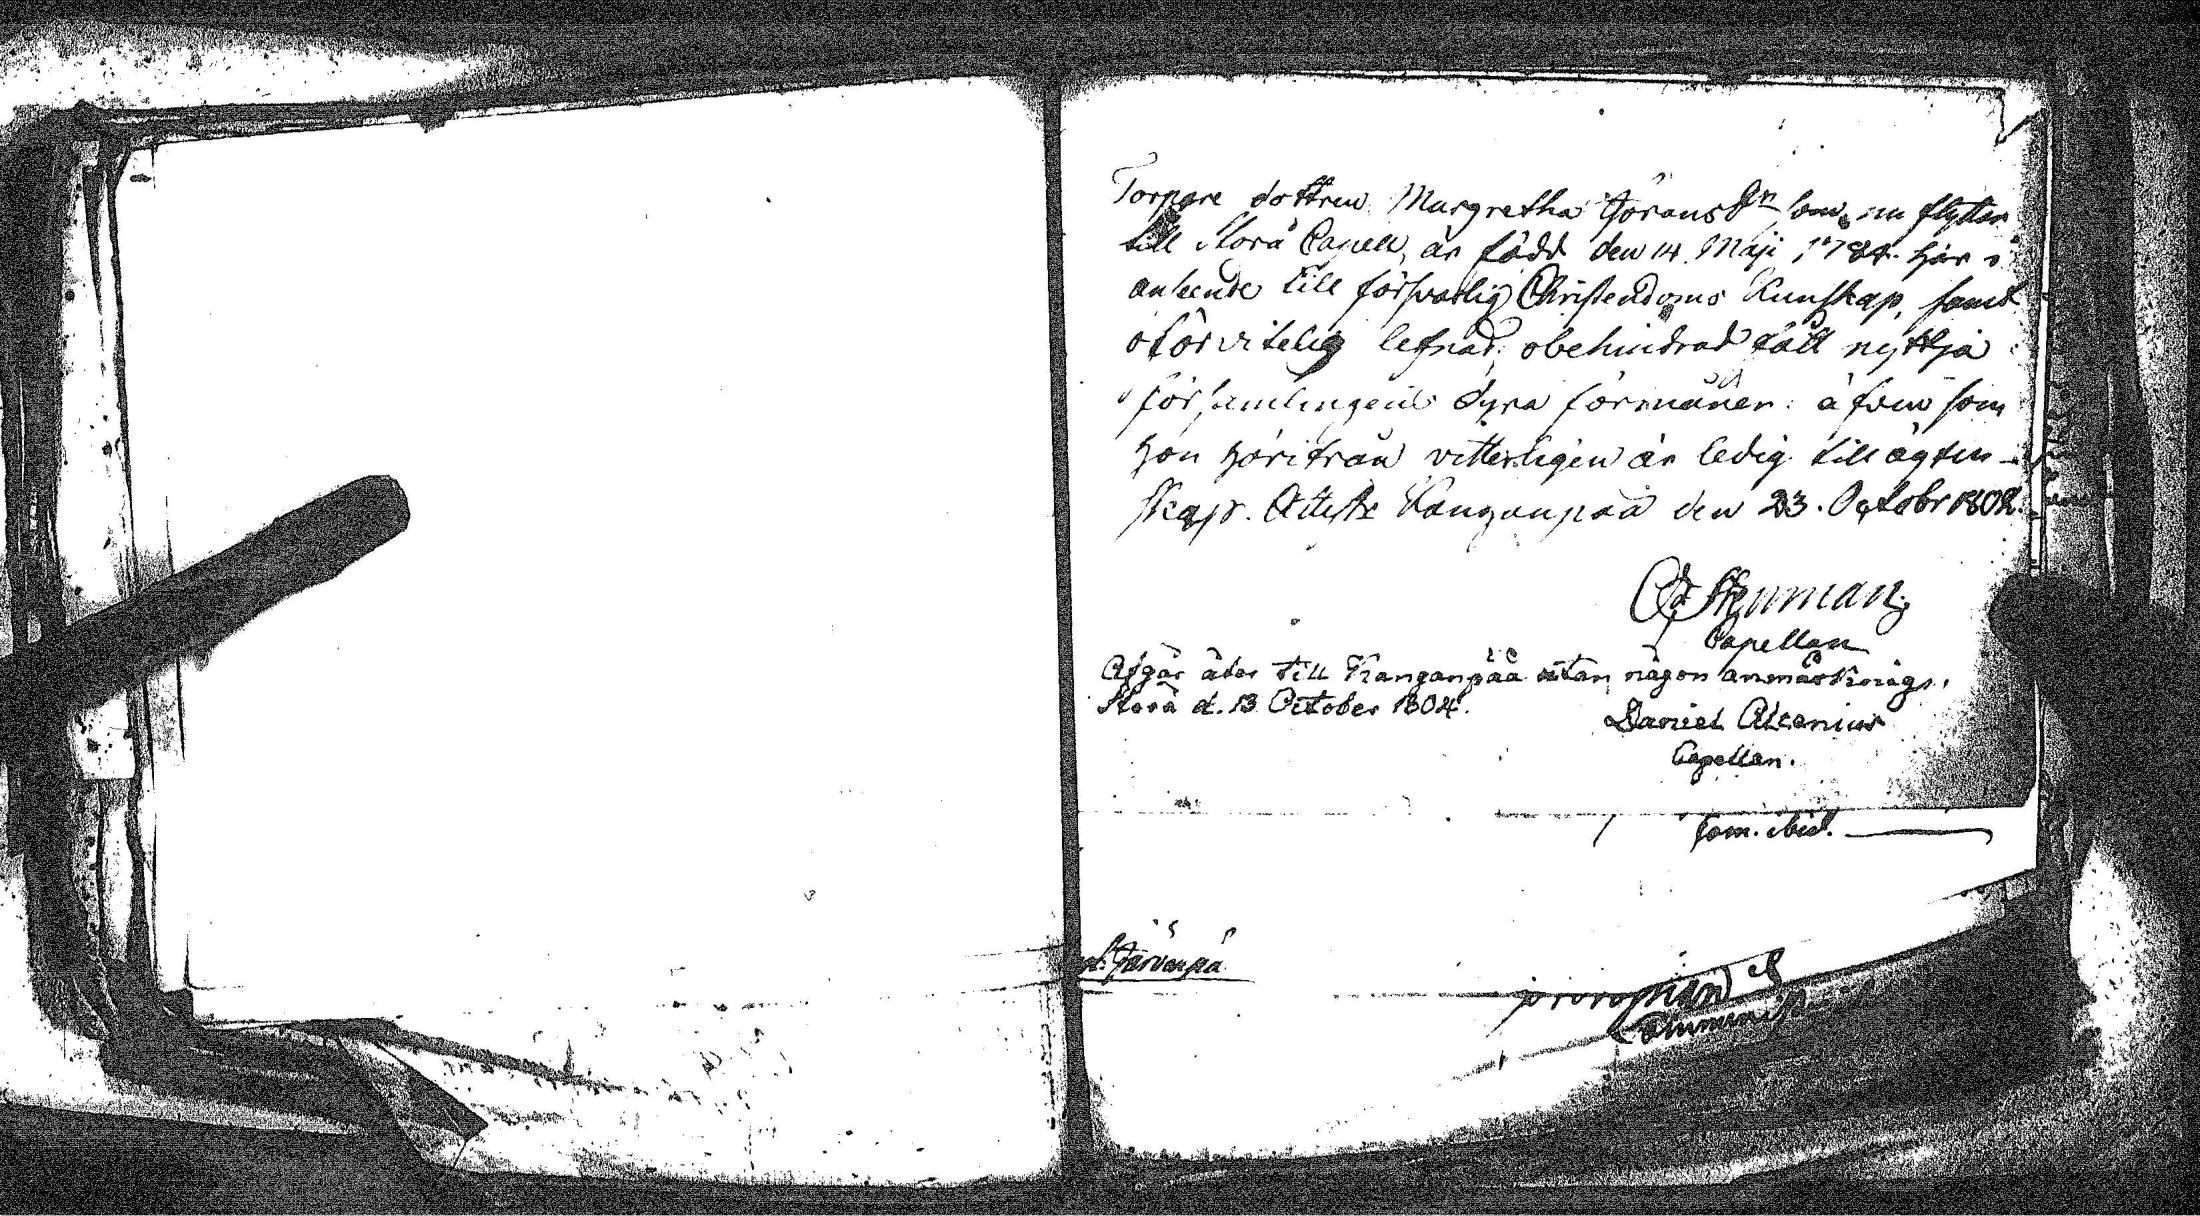 Torpare dottren Margretha Görans Dr som nu flyttar
till Storå Capell, är född den 14 Maji 1784. har i
anseende till försvarlig Christendoms Kunskap, samt
oförvitelig lefnad, obehindrad fått nyttja
församlingens dyra förmåner: äfven som
hon härifrån vitterligen är ledig till ägten-
skap. Attest. Kanganpää den 23. Octobr 1802.
Stenman
Capellan
Afgår åter till Kanganpää utan någon anmärkning.
Storå d. 13 October 1804.
Daniel Alcenius
Capellan.
Järvenpä